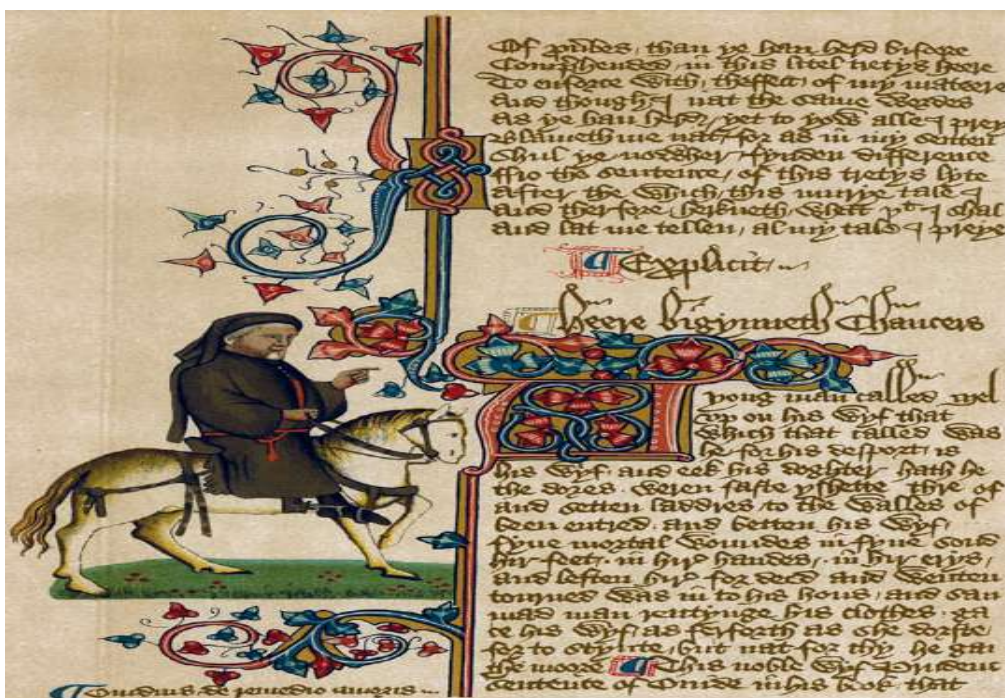 Of prudbes / than ye han herd bifore
Comprehended / in this litel tretys heere
To enforce with / theffect / of my mateere
And though I nat the same wordes
as ye han herd / yet to yow alle I preye
Blameth me nat / for as in my senten
Shul ye nowher / fynden difference
ffro the sentence / of this tretys lyte
after the which / this murye tale I
and therfore / herkneth / what yt I shal
and lat me tellen / al my tale I preye
¶ Explicit
¶ heere bigynneth Chaucers
A yong man called mel
vp on his wyf that
which that called was
he for his desport / is
his wyf / and eek his doghter / hath he
the dores . weren faste yshette / thre of
and setten laddres / to the walles of
been entred / and betten his wyf /
fyue mortal woundes in fyue sond
hir feet / in hir handes / in hir erys /
and leften hir for deed and wenten
tourned was in to his hous / and sau
mad man rentynge his clothes . ga
te his wyf / as ferforth as she dorste /
for to stynte / but nat for thy he gan
the moore ¶ This noble wyf Prudent
sentence of Ouide in his book that
¶ Ouidius de remedio amoris